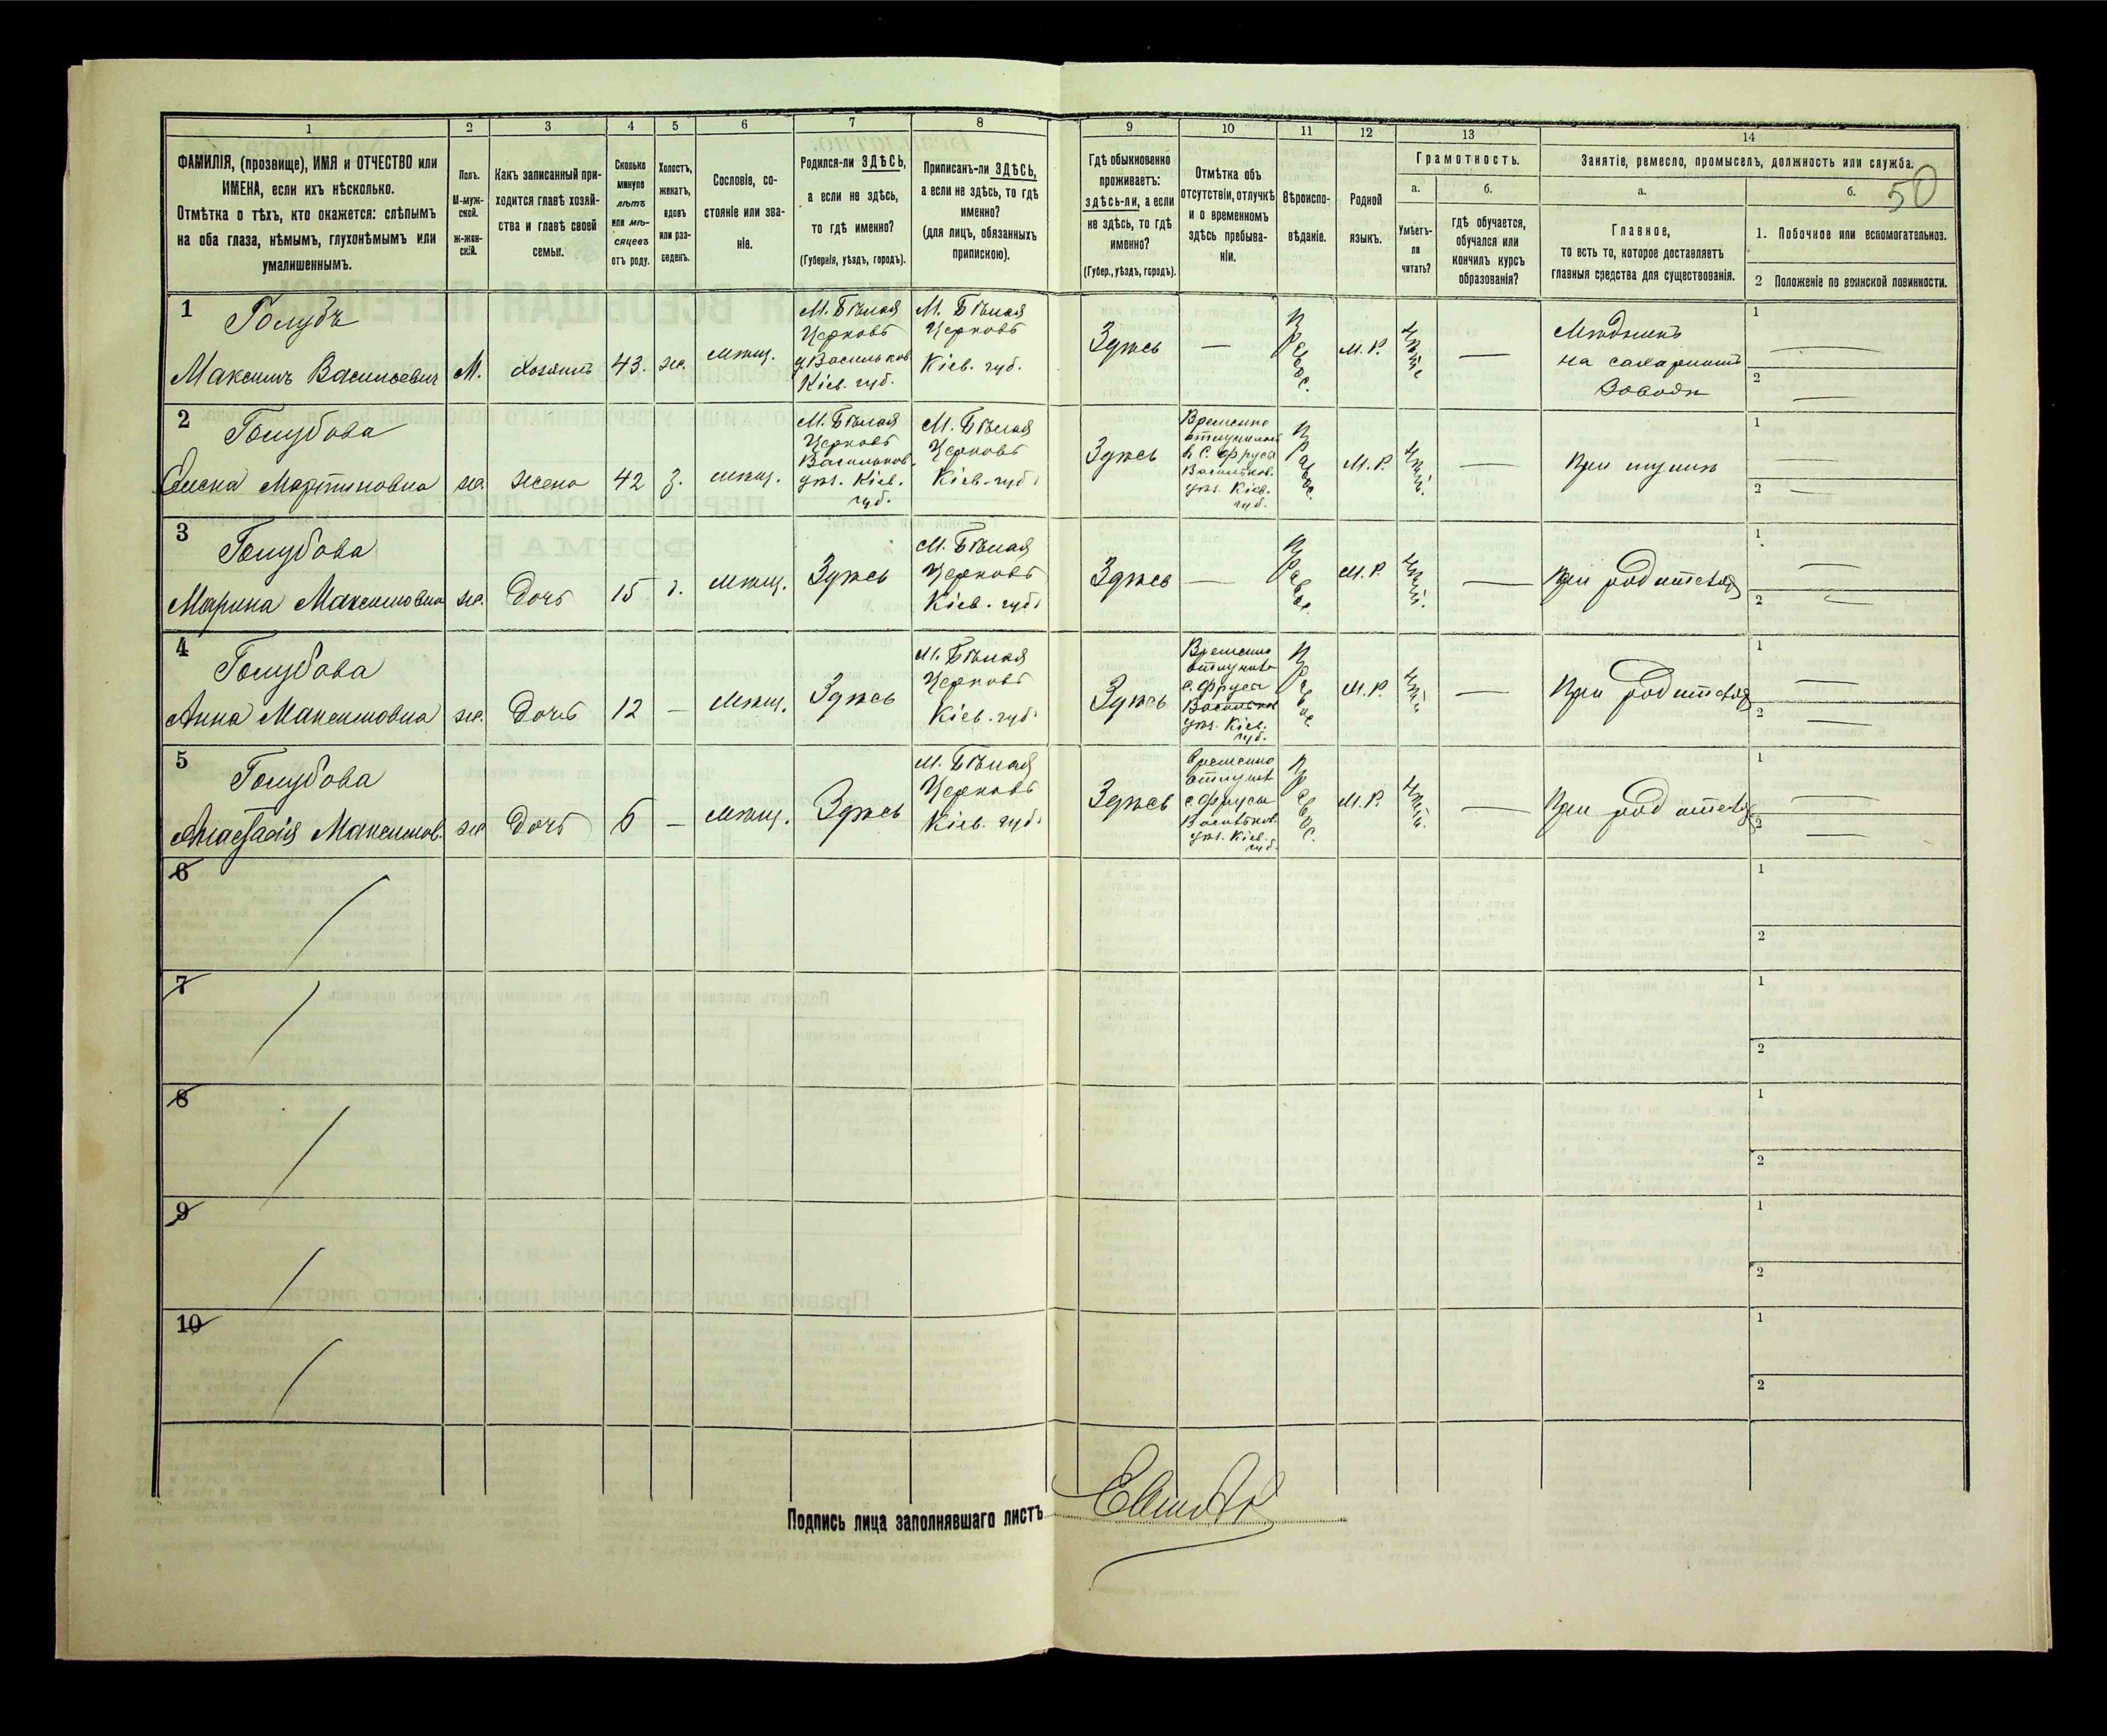 1 2 3 4 5 6 7 8 9 10 11 12 13 14
ФАМИЛІЯ, (прозвище), ИМЯ и ОТЧЕСТВО или
ИМЕНА, если ихъ нѣсколько.
Отмѣтка о тѣхъ, кто окажется: слѣпымъ
на оба глаза, нѣмымъ, глухонѣмымъ или
умалишеннымъ.
Полъ.
М-муж-
ской.
ж-жен-
скій.
Какъ записанный при-
ходится главѣ хозяй-
ства и главѣ своей
семьи.
Сколько
минуло
лѣтъ
или мѣ-
сяцевъ
отъ роду.
Холостъ,
женатъ,
вдовъ
или раз-
веденъ.
Сословіе, со-
стояніе или зва-
ніе.
Родился-ли ЗДѢСЬ,
а если не здѣсь,
то гдѣ именно?
(Губернія, уѣздъ, городъ).
Приписанъ-ли ЗДѢСЬ,
а если не здѣсь, то гдѣ
именно?
(для лицъ, обязанныхъ
припискою).
Гдѣ обыкновенно
проживаетъ:
здѣсь-ли, а если
не здѣсь, то гдѣ
именно?
(Губер., уѣздъ, городъ).
Отмѣтка объ
отсутствіи, отлучкѣ
и о временномъ
здѣсь пребыва-
ніи.
Вѣроиспо-
вѣданіе.
Родной
языкъ.
Грамотность.
а.
Умѣетъ-
ли
читать?
б.
гдѣ обучается,
обучался или
кончилъ курсъ
образованія?
Занятіе, ремесло, промыселъ, должность или служба.
а.
Главное,
то есть то, которое доставляетъ
главныя средства для существованія.
б.
50
1. Побочное или вспомогательное.
2 Положеніе по воинской повинности.
1
Голубъ
Максимъ Васильевичъ
М.
Хозяинъ
43.
же.
Мѣщ.
М. Бѣлая
Церковь
у. Васильков.
Кіев. губ.
М. Бѣлая
Церковь
Кіев. губ.
Здѣсь
—
Правос.
М. Р.
—
Мѣдникъ
на сахарномъ
Заводѣ
1 —
2 —
2
Голубова
Мартиновна
же.
жена
42
З.
мѣщ.
М. Бѣлая
Церковь
Васильков.
уѣз. Кіев.
губ.
М. Бѣлая
Церковь
Кіев. губ.
Здѣсь
Временно
отлучилась
в с. Фрусы
Васильков.
уѣз. Кіев.
губ.
Правос.
М. Р.
—
При мужѣ
1 —
2 —
3
Голубова
Марина Максимовна
же.
Дочь
15
д.
мѣщ.
Здѣсь
М. Бѣлая
Церковь
Кіев. губ.
Здѣсь
—
Правос.
М. Р.
—
При родителяхъ
1 —
2 —
4
Голубова
Анна Максимовна
же.
Дочь
12
—
Мѣщ.
Здѣсь
М. Бѣлая
Церковь
Кіев. губ.
Здѣсь
Временно
с. Фрусы
Васильков
уѣз. Кіев.
губ.
Правос.
М. Р.
—
При родителяхъ
1 —
2 —
5
Голубова
Анастасія Максимов.
же
Дочь
6
—
мѣщ.
Здѣсь
М. Бѣлая
Церковь
Кіев. губ.
Здѣсь
Временно
с. Фрусы
Васильков.
уѣз. Кіев.
губ.
Правос.
М. Р.
—
При родителях
1 —
2 —
6
1
2
7
1
2
8
1
2
9
1
2
10
1
2
Подпись лица заполнявшаго листъ